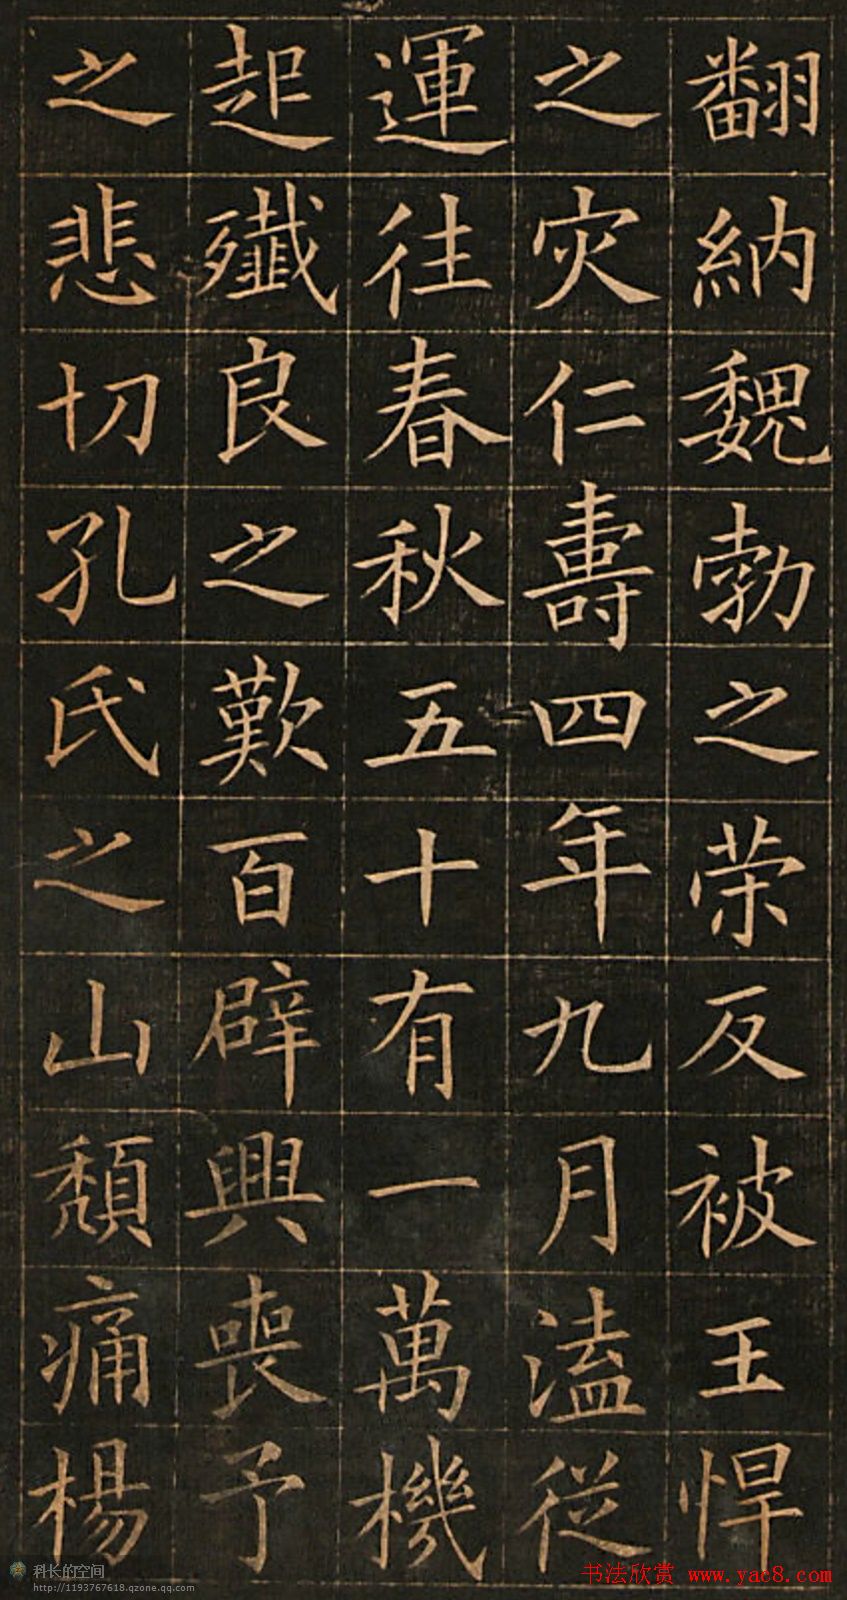 翻納魏勃之荣反被王悍
之灾仁壽四年九月溘従
運往春秋五十有一萬機
起殲良之歎百辟興喪予
之悲切孔氏之山頹痛楊
科长的空间
http://1193767618.qzone.qq.com
书法欣赏 www.yac8.com